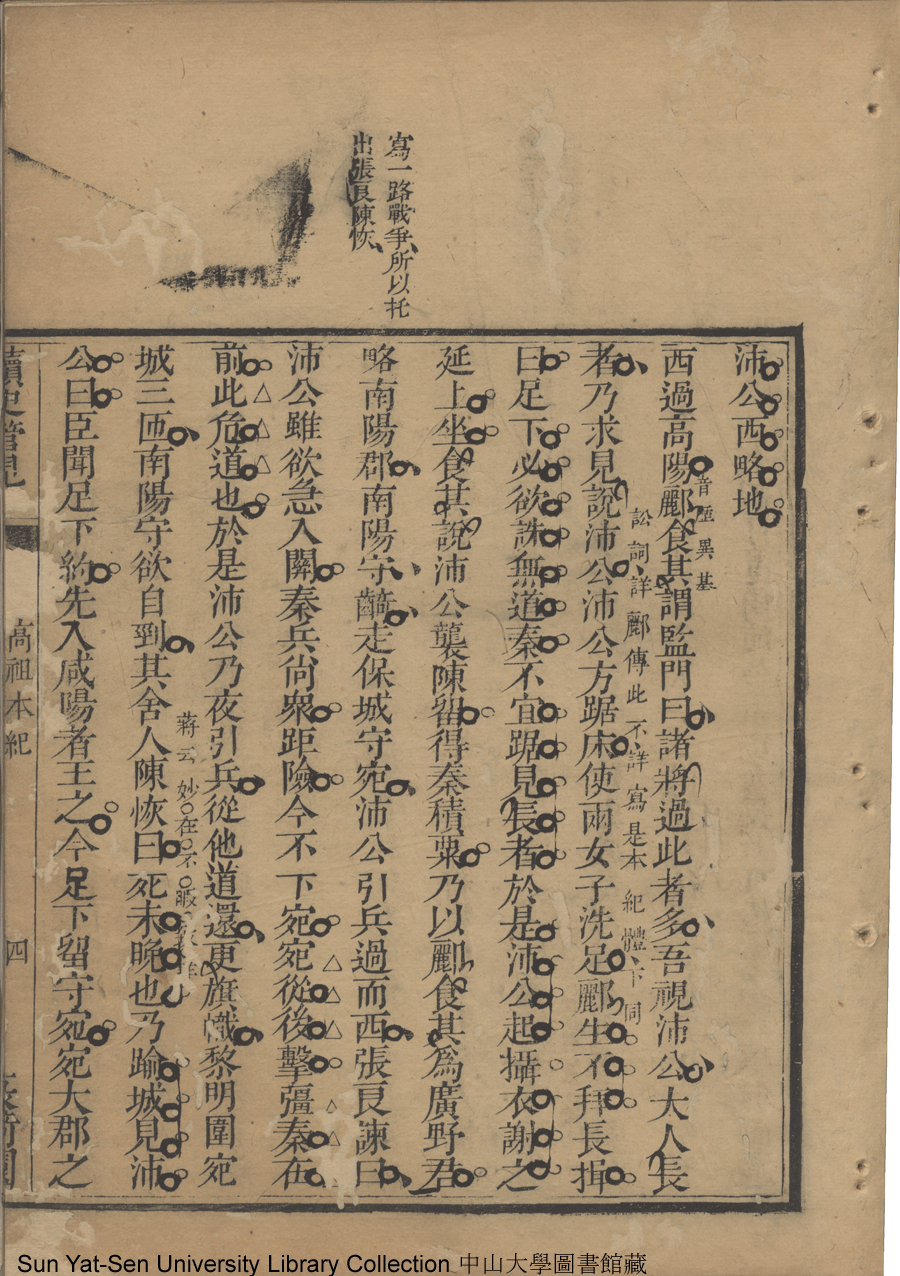 寫一路戰爭所以托
出張良陳恢
沛公西略地
西過高陽酈食其謂監門曰諸將過此者多吾視沛公大人長
音歷異基
者乃求見說沛公沛公方踞床使兩女子洗足酈生不拜長揖
訟詞詳酈傳此不詳寫是本紀體下同
曰足下必欲誅無道秦不宜踞見長者於是沛公起攝衣謝之
延上坐食其說沛公襲陳留得秦積粟乃以酈食其為廣野君
略南陽郡南陽守齮走保城守宛沛公引兵過而西張良諫曰
沛公雖欲急入關秦兵尚衆距險今不下宛宛從後擊彊秦在
前此危道也於是沛公乃夜引兵從他道還更旗幟黎明圍宛
蔣云妙在不暇
城三匝南陽守欲自剄其舍人陳恢曰死未晚也乃踰城見沛
公曰臣聞足下約先入咸陽者王之今足下留守宛宛大郡之
讀史管見
高祖本紀
四
Sun Yat-Sen University Library Collection 中山大學圖書館藏